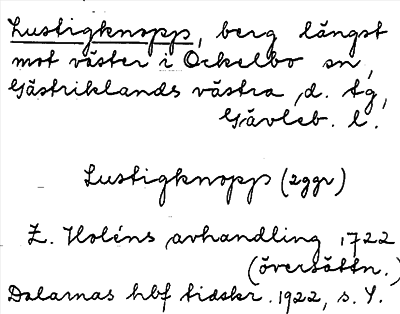 Lustigknopp, berg längst
mot väster i Ockelbo sn,
Gästriklands västra d. tg,
Gävleb. l.
Lustigknopp (2ggr)
Z. Holéns avhandling 1722
(översättn.)
Dalarnas hbf tidskr. 1922, s. 4.